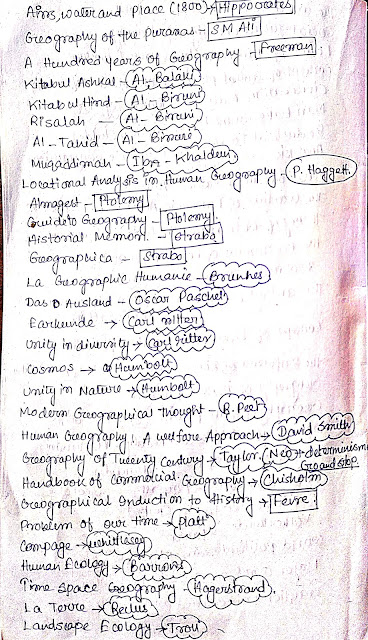 Airs, water and Place (1800) → Hippocrates
Geography of the Puranas - SM Ali
A Hundred years of Geography - Freeman
Kitabul Ashkal - Al-Balakhi
Kitabul Hind - Al-Biruni
Risalah - Al-Biruni
Al-Tahid - Al-Biruni
Muqaddimah - Ibn-Khaldun
Locational Analysis in Human Geography - P. Haggett.
Almagest - Ptolemy
Guide to Geography - Ptolemy
Historial Memori - Strabo
Geographica - Strabo
La Geographie Humanie - Brunhes
Das Ausland - Oscar Paschel
Earkunde → Carl ritter
Unity in diversity → Carl ritter
Cosmos → Humbolt
Unity in Nature → Humbolt
Modern Geographical thought - R. Peet
Human Geography: A welfare Approach → David Smith
Geography of Twenty Century → Taylor (Neo determinism
Go and stop
Handbook of Commercial Geography → Chisholm
Geographical Induction to History → Fevre
Problem of our time → Platt
Compage → whittlesey
Human Ecology → Barrows
Time Space Geography - Hagerstrand.
La Terre → Reclus
Landscape Ecology → Troll